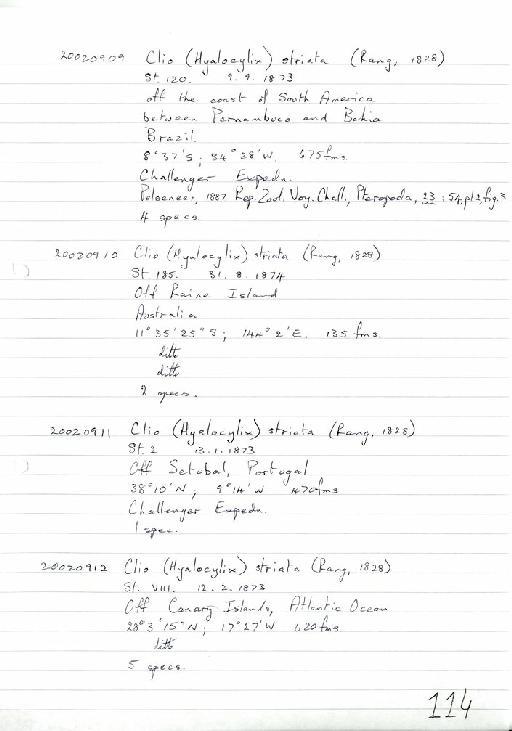 20020909 Clio (Hyalocylix) striata (Rang, 1828)
St. 120. 9.9.1873
off the coast of South America
between Pernambuco and Bahia
Brazil.
8°37'S; 34°28'W. 675 fms.
Challenger Expedn.
Pelseneer, 1887 Rep. Zool. Voy. Chall., Pteropoda, 23: 54, pl 2, fig.
4 specs.
20020910 Clio (Hyalocylix) striata (Rang, 1828)
St 185. 31.8.1874
Off Raine Island
Australia
11°35'25"S; 144°2'E. 135 fms.
ditto
ditto
2 specs.
20020911 Clio (Hyalocylix) striata (Rang, 1828)
St. 2 13.1.1873
Off Setubal, Portugal
38°10'N; 9°14'W 470 fms
Challenger Expedn.
1 spec.
20020912 Clio (Hyalocylix) striata (Rang, 1828)
St. VIII. 12.2.1873
Off Canary Islands, Atlantic Ocean
28°3'15"N; 17°27'W 620 fms
ditto
5 specs.
114